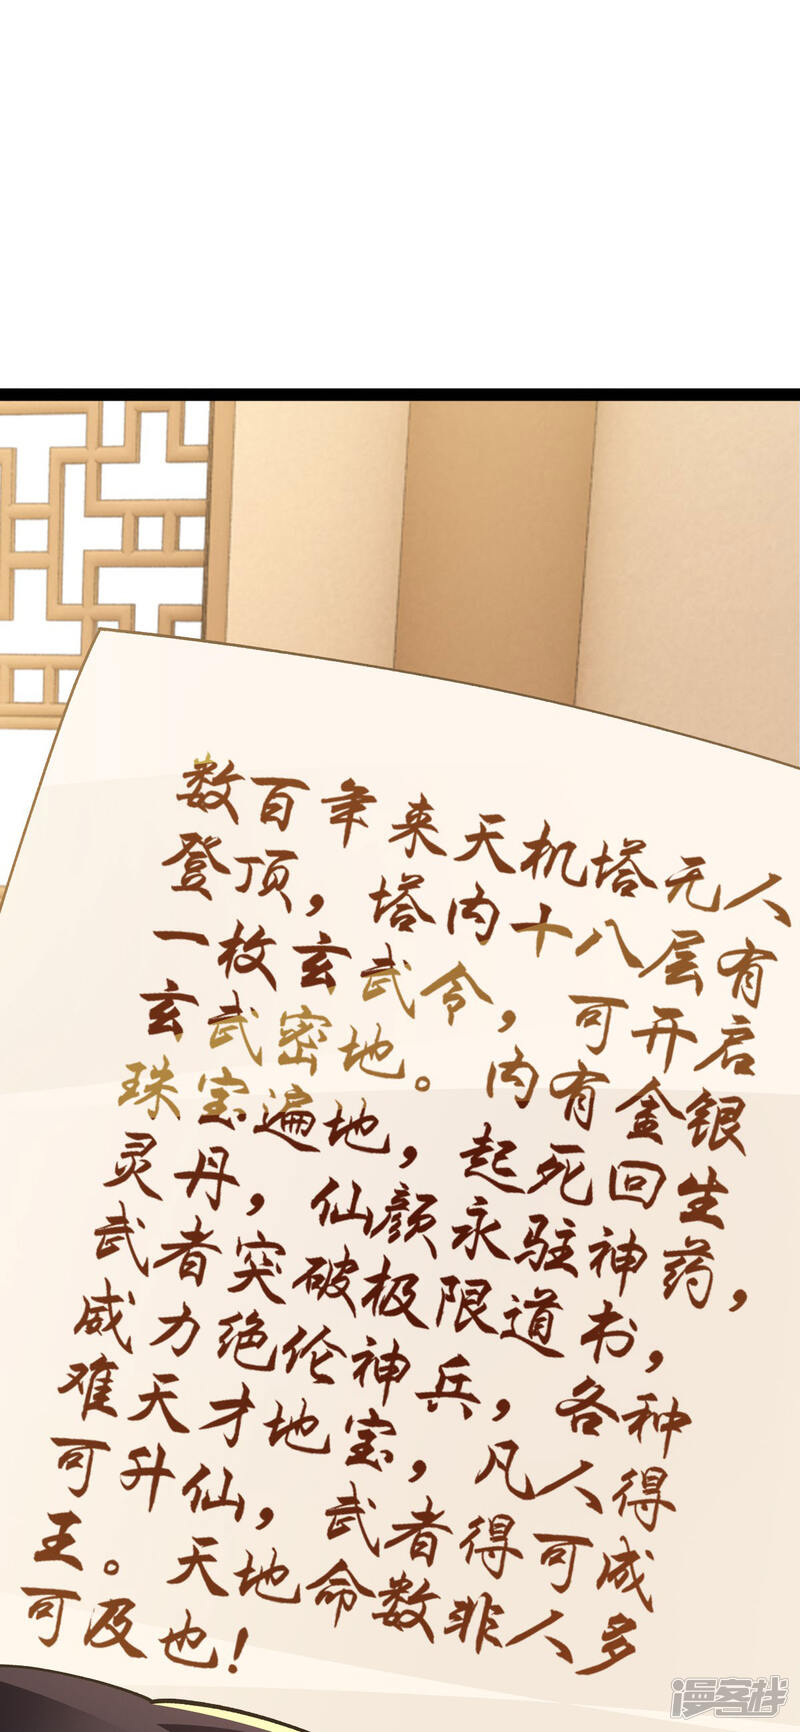 数百年来天机塔无人
登顶，塔内十八层有
一枚玄武令，可开启
玄武密地。内有金银
珠宝遍地，起死回生
灵丹，仙颜永驻神药，
武者突破极限道书，
威力绝伦神兵，各种
难天才地宝，凡人得
可升仙，武者得可成
王。天地命数非人多
可及也！
漫客栈